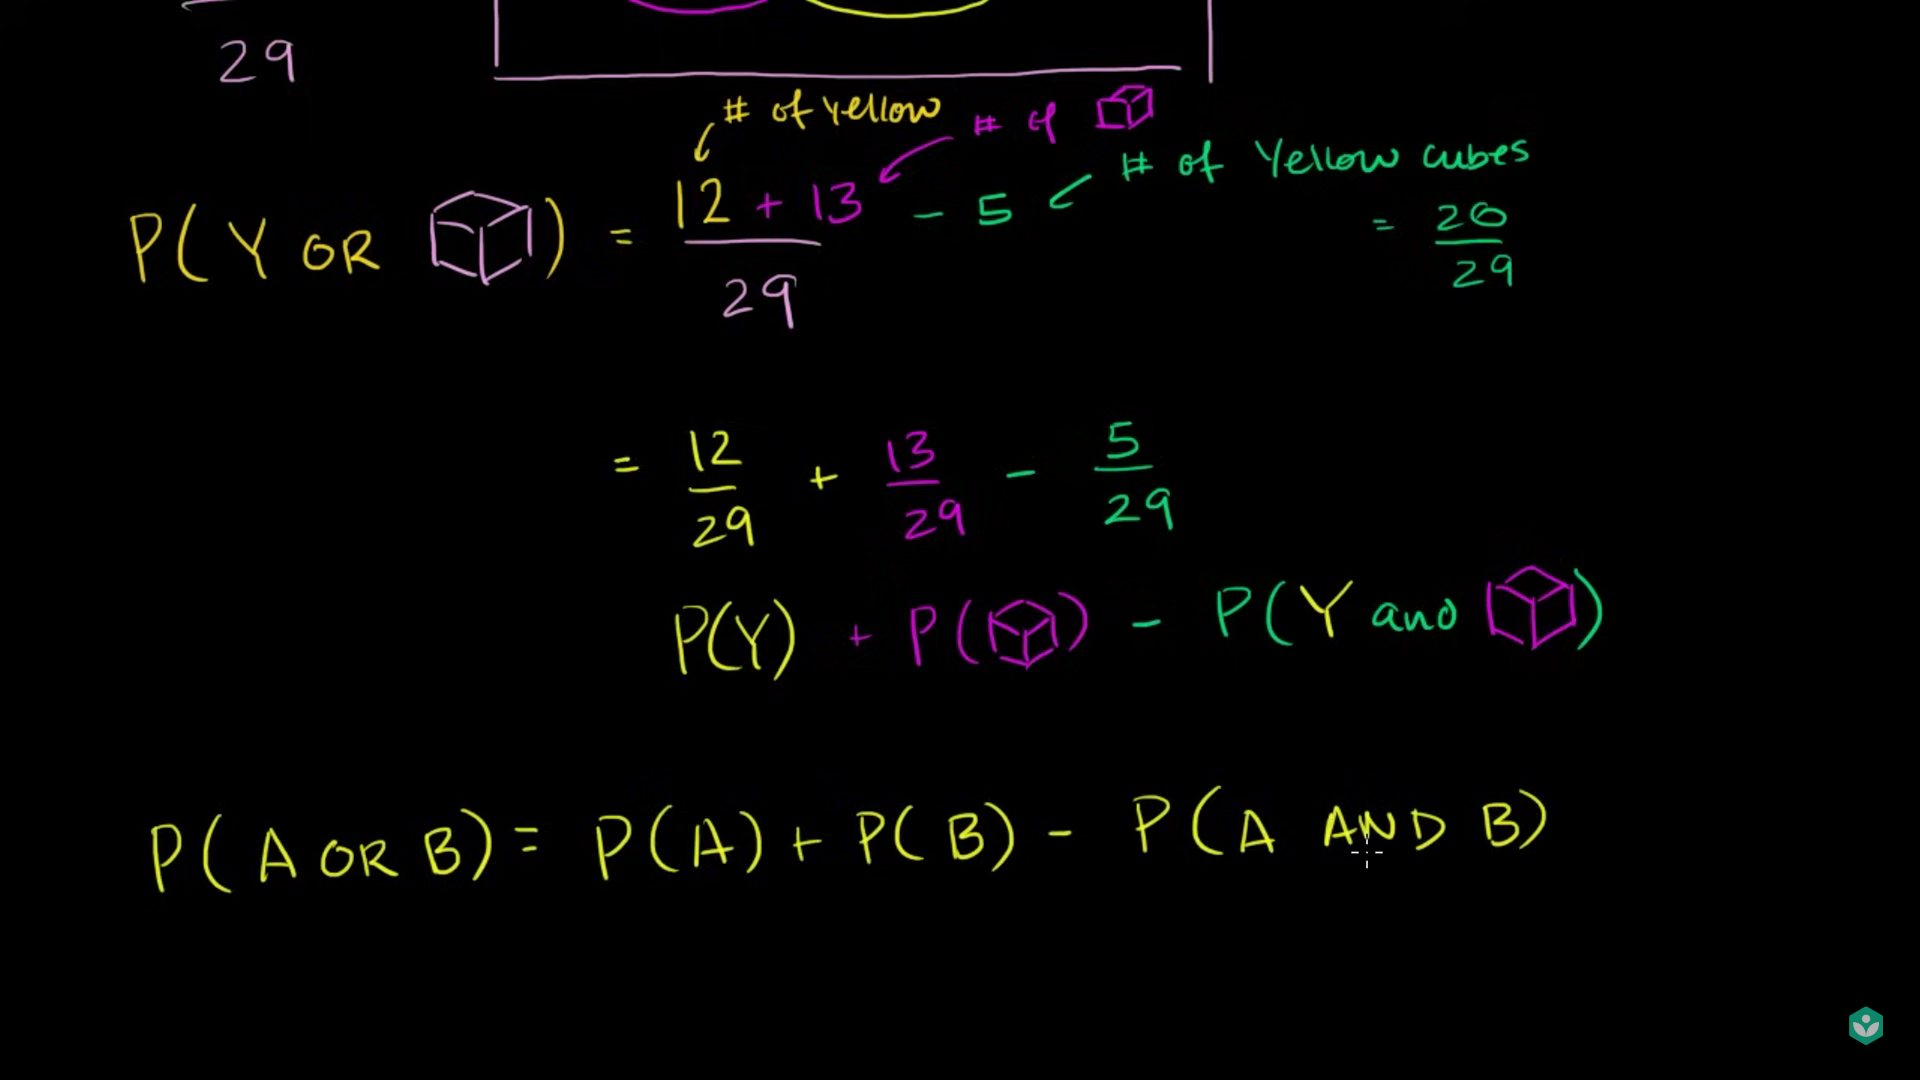 29
# of yellow
# of
# of Yellow cubes
P(Y OR ) = 12 + 13 - 5
29
= 20
29
= 12/29 + 13/29 - 5/29
P(Y) + P( ) - P(Y and )
P(A OR B) = P(A) + P(B) - P(A AND B)